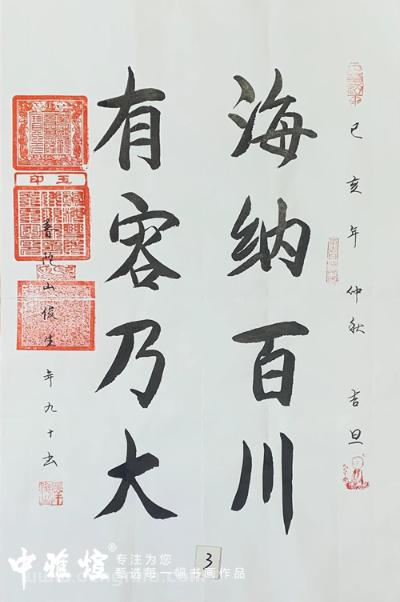 己亥年 仲秋 吉旦
海纳百川
有容乃大
普陀山俊生 年九十书
玉印
3
中雅煊®
专注为您
甄选每一幅书画作品